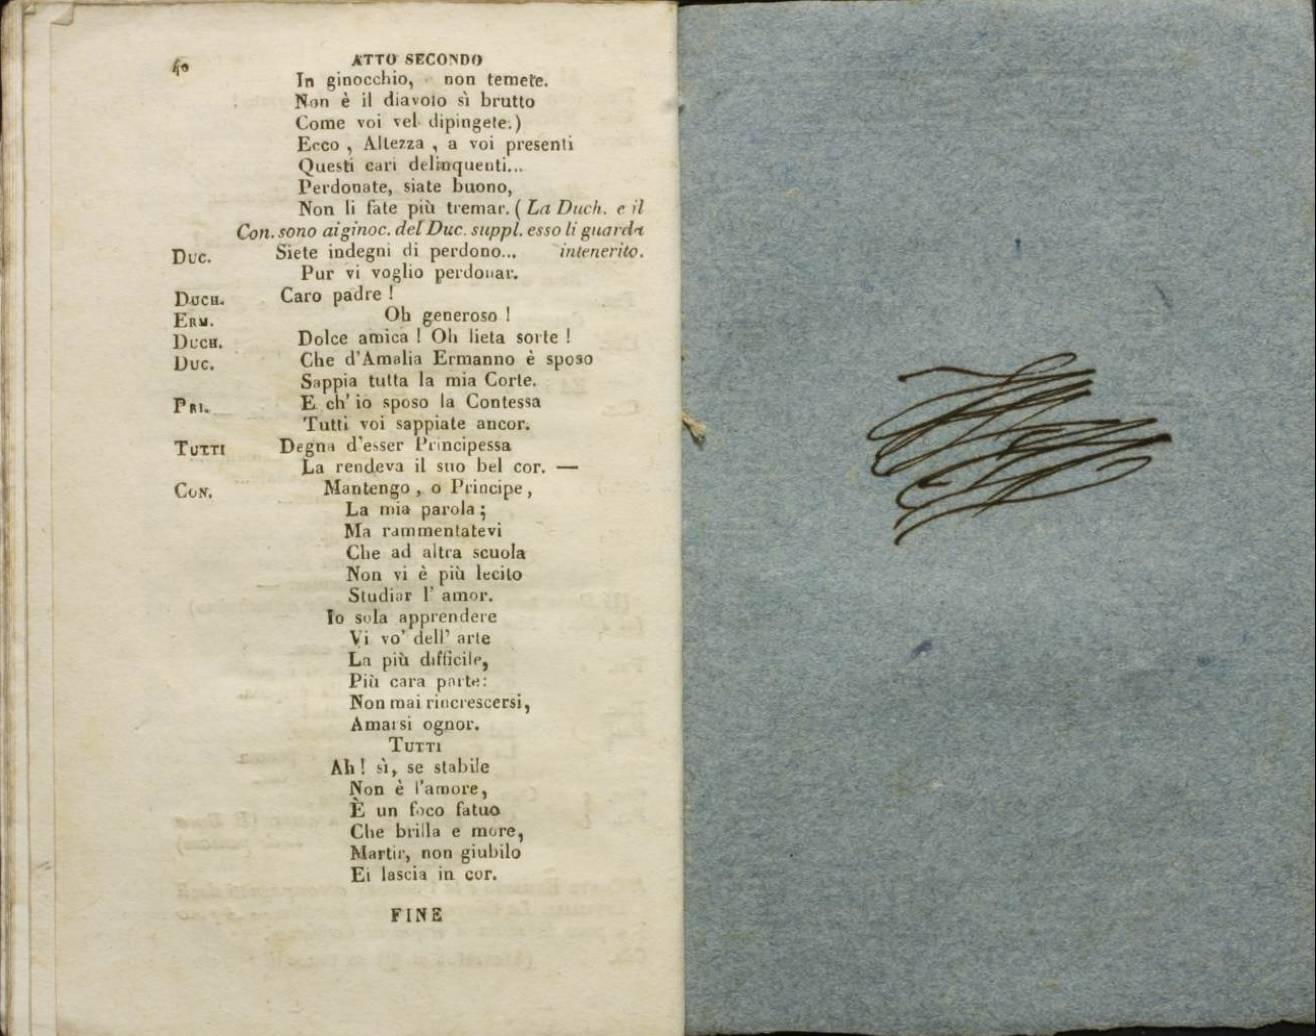 40
ATTO SECONDO
In ginocchio, non temete.
Non è il diavolo sì brutto
Come voi vel dipingete.)
Ecco, Altezza, a voi presenti
Questi cari delinquenti...
Perdonate, siate buono,
Non li fate più tremar. (La Duch. e il
Con. sono ai ginoc. del Duc. suppl. esso li guarda
Duc. Siete indegni di perdono... intenerito.
Pur vi voglio perdonar.
Duch. Caro padre!
Erm. Oh generoso!
Duch. Dolce amica! Oh lieta sorte!
Duc. Che d'Amalia Ermanno è sposo
Sappia tutta la mia Corte.
Pri. E ch'io sposo la Contessa
Tutti voi sappiate ancor.
Tutti Degna d'esser Principessa
La rendeva il suo bel cor. —
Con. Mantengo, o Principe,
La mia parola;
Ma rammentatevi
Che ad altra scuola
Non vi è più lecito
Studiar l'amor.
Io sola apprendere
Vi vo' dell'arte
La più difficile,
Più cara parte:
Non mai rincrescersi,
Amarsi ognor.
Tutti
Ah! sì, se stabile
Non è l'amore,
È un foco fatuo
Che brilla e more,
Martir, non giubilo
Ei lascia in cor.
FINE